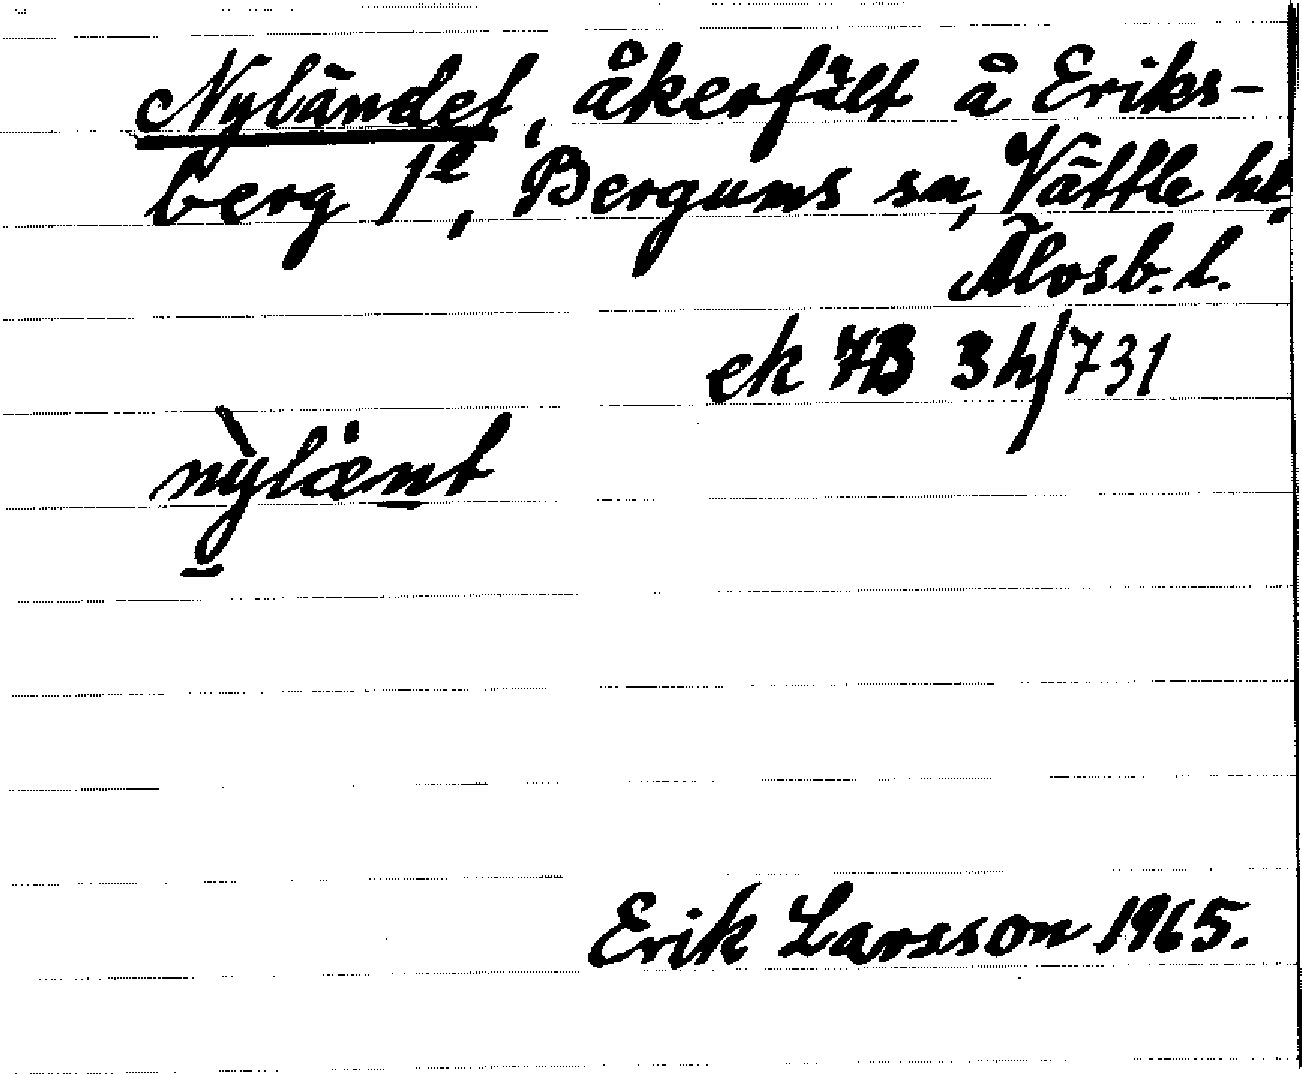 Nyländet, åkerfält å Eriks-
berg 1e, Bergums sn, Vättle hd,
Älvsb. l.
ek 7B 3h/731
nỳlænt
Erik Larsson 1965.